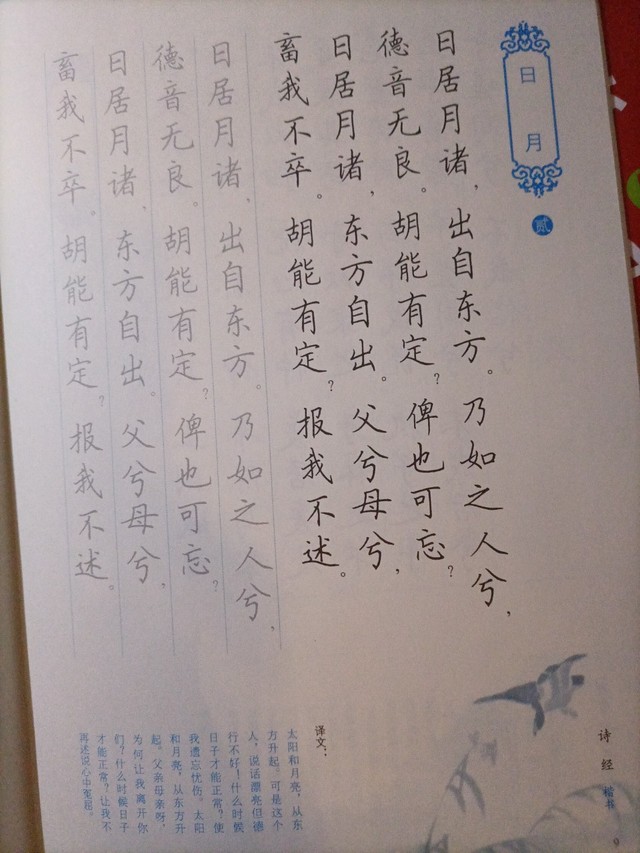 日月
贰
日居月诸，出自东方。乃如之人兮，
德音无良。胡能有定？俾也可忘？
日居月诸，东方自出。父兮母兮，
畜我不卒。胡能有定？报我不述。
日居月诸，出自东方。乃如之人兮，
德音无良。胡能有定？俾也可忘？
日居月诸，东方自出。父兮母兮，
畜我不卒。胡能有定？报我不述。
诗经 楷书
9
译文：
太阳和月亮，从东
方升起。可是这个
人，说话漂亮但德
行不好！什么时候
日子才能正常？使
我遗忘忧伤。太阳
和月亮，从东方升
起。父亲母亲呀，
为何让我离开你
们？什么时候日子
才能正常？让我不
再述说心中冤屈。